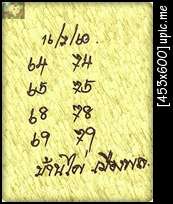 16/2/60.
64 74
65 75
68 78
69 79
บ้านไผ่ เมืองพล
[453x600] upic.me